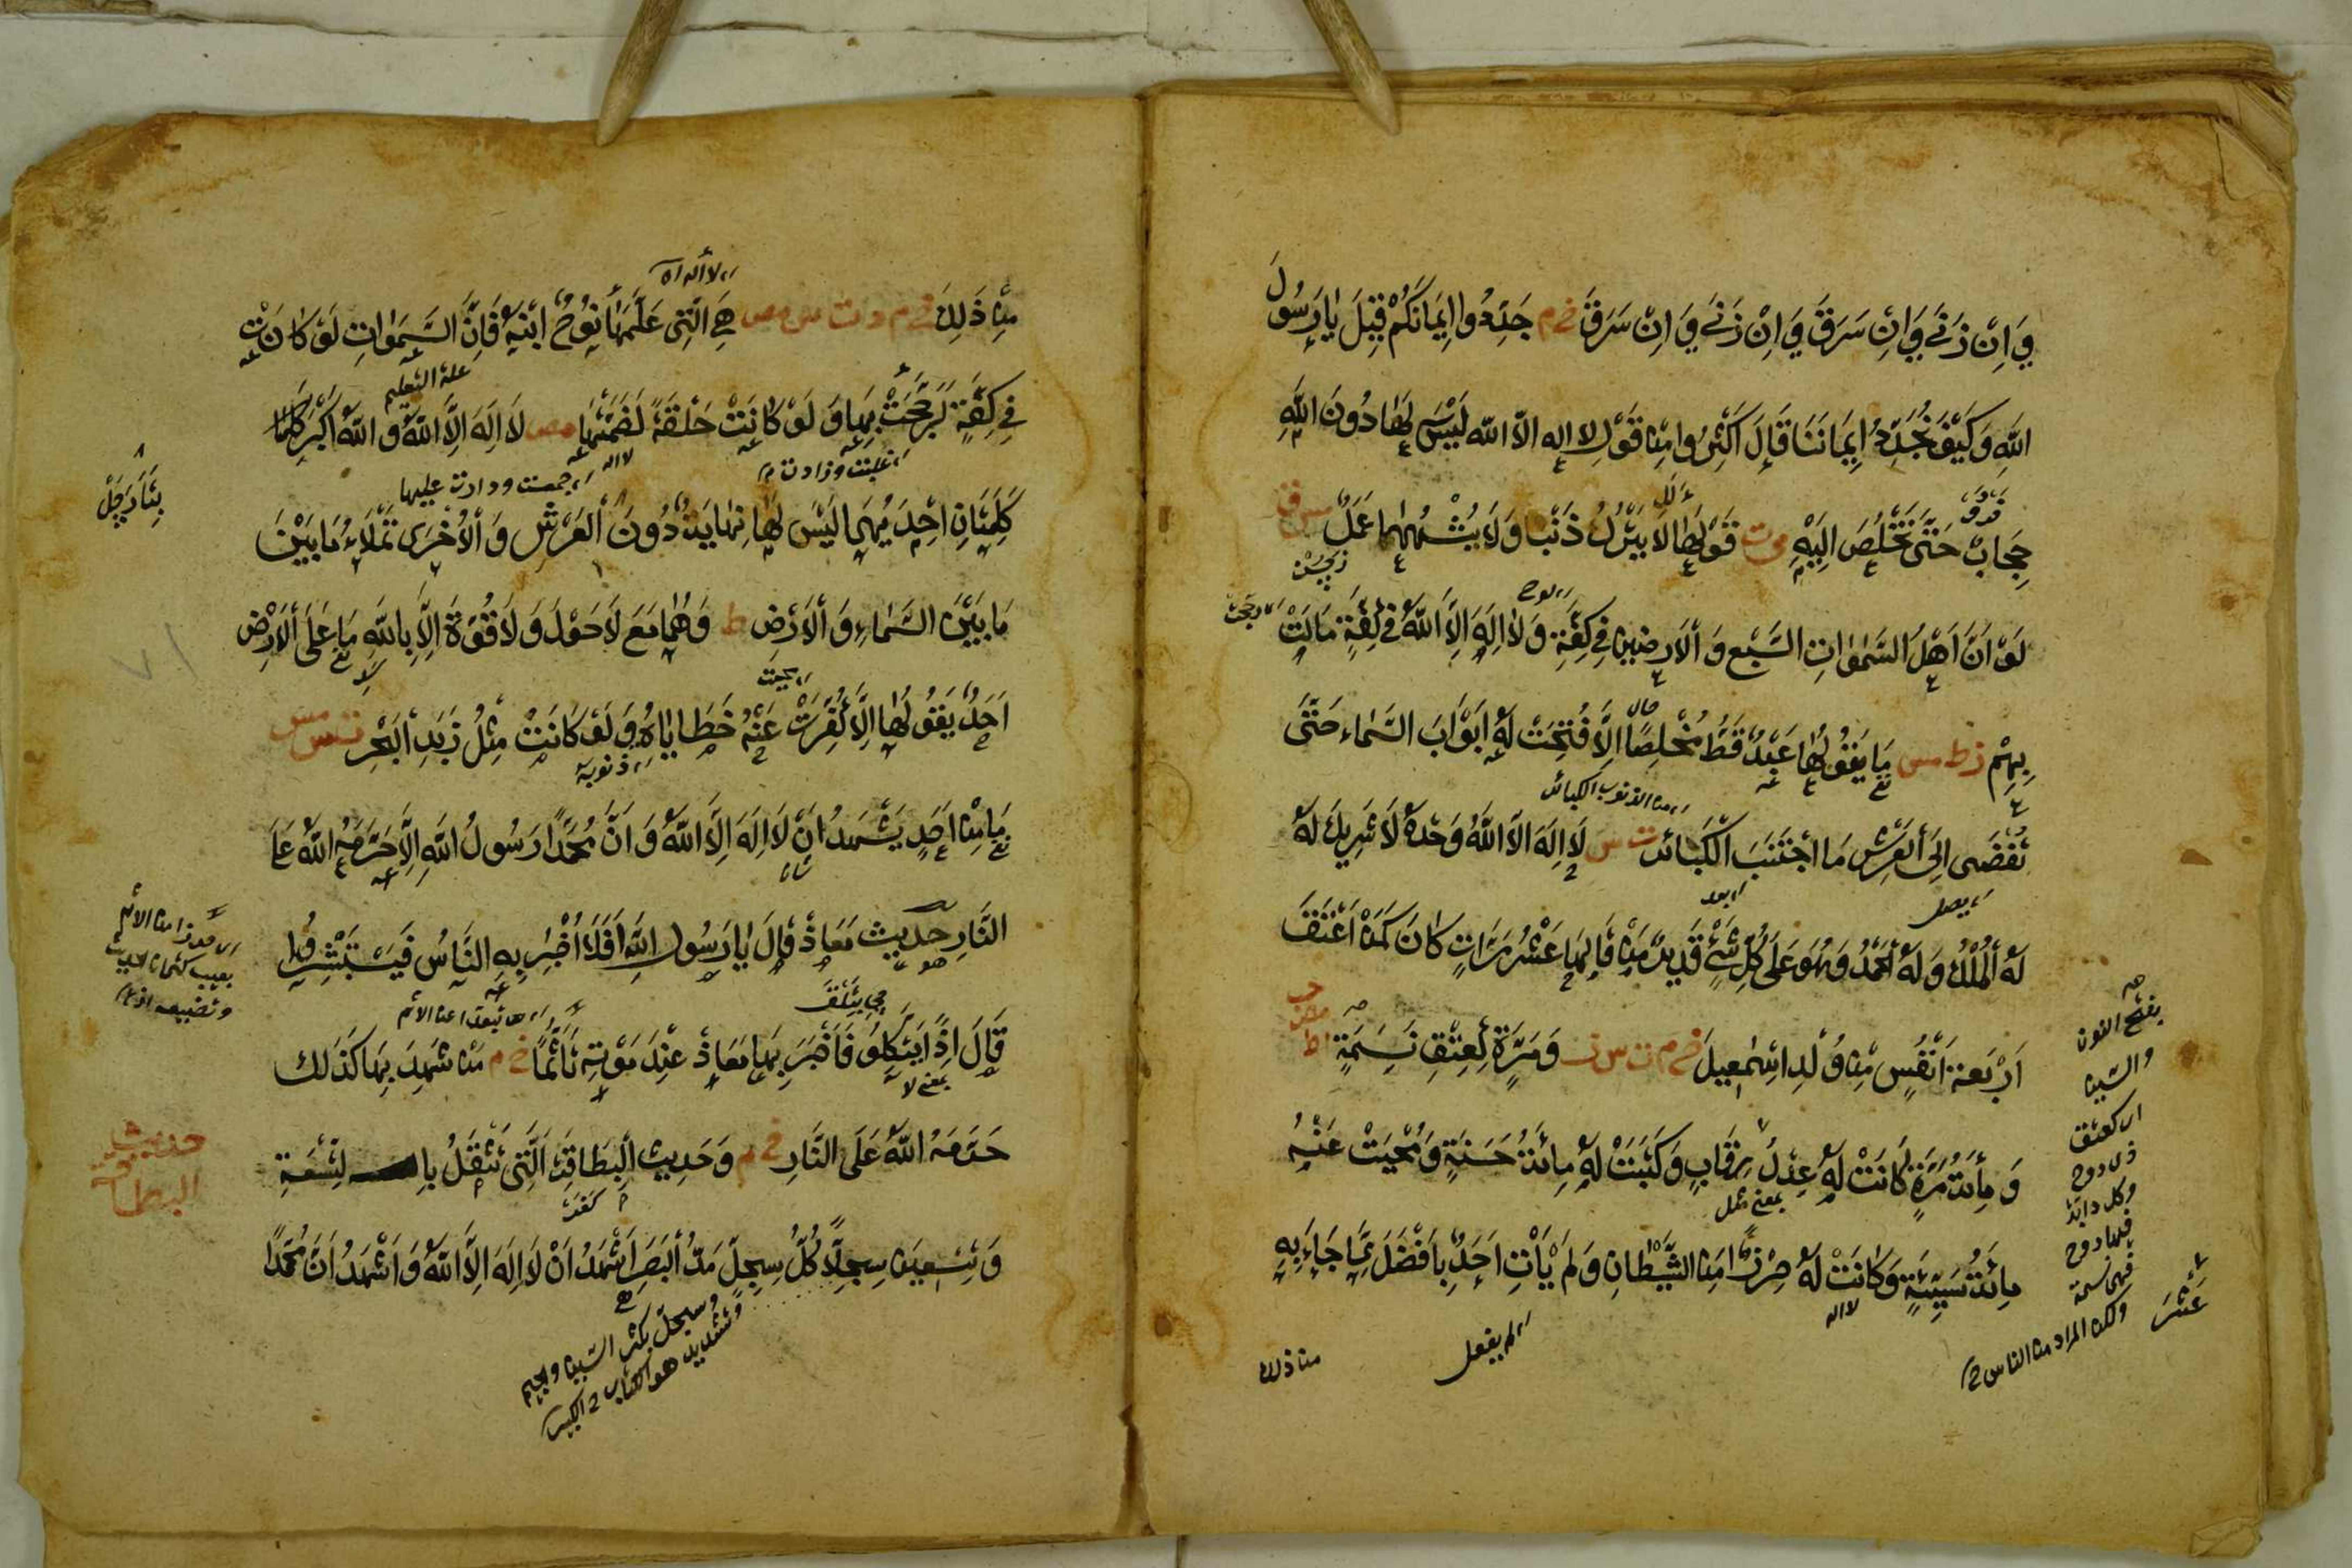 وَاِنْ زَنٰى وَاِنْ سَرَقَ وَاِنْ زَنٰى وَاِنْ سَرَقَ خ م جَدِّدُوا اِيمَانَكُمْ قِيلَ يَا رَسُولَ
اللهِ وَكَيْفَ نُجَدِّدُ اِيمَانَنَا قَالَ اَكْثِرُوا مِنْ قَوْلِ لا اله الا الله لَيْسَ لَهَا دُونَ اللهِ
حِجَابٌ حَتّٰى تَخْلُصَ اِلَيْهِ ت قَوْلُهَا لَا يَتْرُكُ ذَنْبًا وَلَا يُشْبِهُهَا عَمَلٌ مس
لَوْ اَنَّ اَهْلَ السَّمٰوَاتِ السَّبْعِ وَالْاَرَضِينَ فِي كِفَّةٍ وَلَا اِلٰهَ اِلَّا اللهُ فِي كِفَّةٍ مَالَتْ
بِهِمْ مس مَا يَقُولُهَا عَبْدٌ قَطُّ مُخْلِصًا اِلَّا فُتِحَتْ لَهُ اَبْوَابُ السَّمَاءِ حَتّٰى
تُفْضِىَ اِلَى الْعَرْشِ مَا اجْتَنَبَ الْكَبَائِرَ ت س لَا اِلٰهَ اِلَّا اللهُ وَحْدَهُ لَا شَرِيكَ لَهُ
لَهُ الْمُلْكُ وَلَهُ الْحَمْدُ وَهُوَ عَلٰى كُلِّ شَيْءٍ قَدِيرٌ مَنْ قَالَهَا عَشْرَ مَرَّاتٍ كَانَ كَمَنْ اَعْتَقَ
اَرْبَعَةَ اَنْفُسٍ مِنْ وُلْدِ اِسْمٰعِيلَ خ م ت س وَمَرَّةً كَعِتْقِ نَسَمَةٍ
وَمِائَةَ مَرَّةٍ كَانَتْ لَهُ عِدْلَ رِقَابٍ وَكُتِبَتْ لَهُ مِائَةُ حَسَنَةٍ وَمُحِيَتْ عَنْهُ
مِائَةُ سَيِّئَةٍ وَكَانَتْ لَهُ حِرْزًا مِنَ الشَّيْطَانِ وَلَمْ يَأْتِ اَحَدٌ بِاَفْضَلَ مِمَّا جَاءَ بِهِ
من ذلك
بفتح النون
والسين
اى كعتق
ذى روح
وكل دابة
فيها روح
فهى نسمة
ولكن المراد من الناس
عَشْرَ
مِنْ ذٰلِكَ خ م د ت س مص هِىَ الَّتِى عَلَّمَهَا نُوحٌ ابْنَهُ فَاِنَّ السَّمٰوَاتِ لَوْ كَانَتْ
فِي كِفَّةٍ لَرَجَحَتْ بِهَا وَلَوْ كَانَتْ حَلْقَةً لَضَمَّتْهَا مص لَا اِلٰهَ اِلَّا اللهُ وَاللهُ اَكْبَرُ
كَلِمَتَانِ اِحْدٰيهُمَا لَيْسَ لَهَا نِهَايَةٌ دُونَ الْعَرْشِ وَالْاُخْرٰى تَمْلَاُ مَا بَيْنَ
مَا بَيْنَ السَّمَاءِ وَالْاَرْضِ ط وَهُمَا مَعَ لَا حَوْلَ وَلَا قُوَّةَ اِلَّا بِاللهِ مَا عَلَى الْاَرْضِ
اَحَدٌ يَقُولُهَا اِلَّا كُفِّرَتْ عَنْهُ خَطَايَاهُ وَلَوْ كَانَتْ مِثْلَ زَبَدِ الْبَحْرِ ت س مس
مَا مِنْ اَحَدٍ يَشْهَدُ اَنْ لَا اِلٰهَ اِلَّا اللهُ وَاَنَّ مُحَمَّدًا رَسُولُ اللهِ اِلَّا حَرَّمَهُ اللهُ عَلَى
النَّارِ حَدِيثُ مُعَاذٍ قَالَ يَا رَسُولَ اللهِ اَفَلَا اُخْبِرُ بِهِ النَّاسَ فَيَسْتَبْشِرُوا
قَالَ اِذًا يَتَّكِلُوا فَاَخْبَرَ بِهَا مُعَاذٌ عِنْدَ مَوْتِهِ تَاَثُّمًا خ م مَنْ شَهِدَ بِهَا كَذٰلِكَ
حَرَّمَهُ اللهُ عَلَى النَّارِ خ م وَحَدِيثُ الْبِطَاقَةِ الَّتِى تَثْقُلُ لِتِسْعَةِ
وَتِسْعِينَ سِجِلًّا كُلُّ سِجِلٍّ مَدُّ الْبَصَرِ اَشْهَدُ اَنْ لَا اِلٰهَ اِلَّا اللهُ وَاَشْهَدُ اَنَّ مُحَمَّدًا
حديث
البطاقة
وسجل بكسر السين والجيم
وتشديد هو الكتاب الكبير